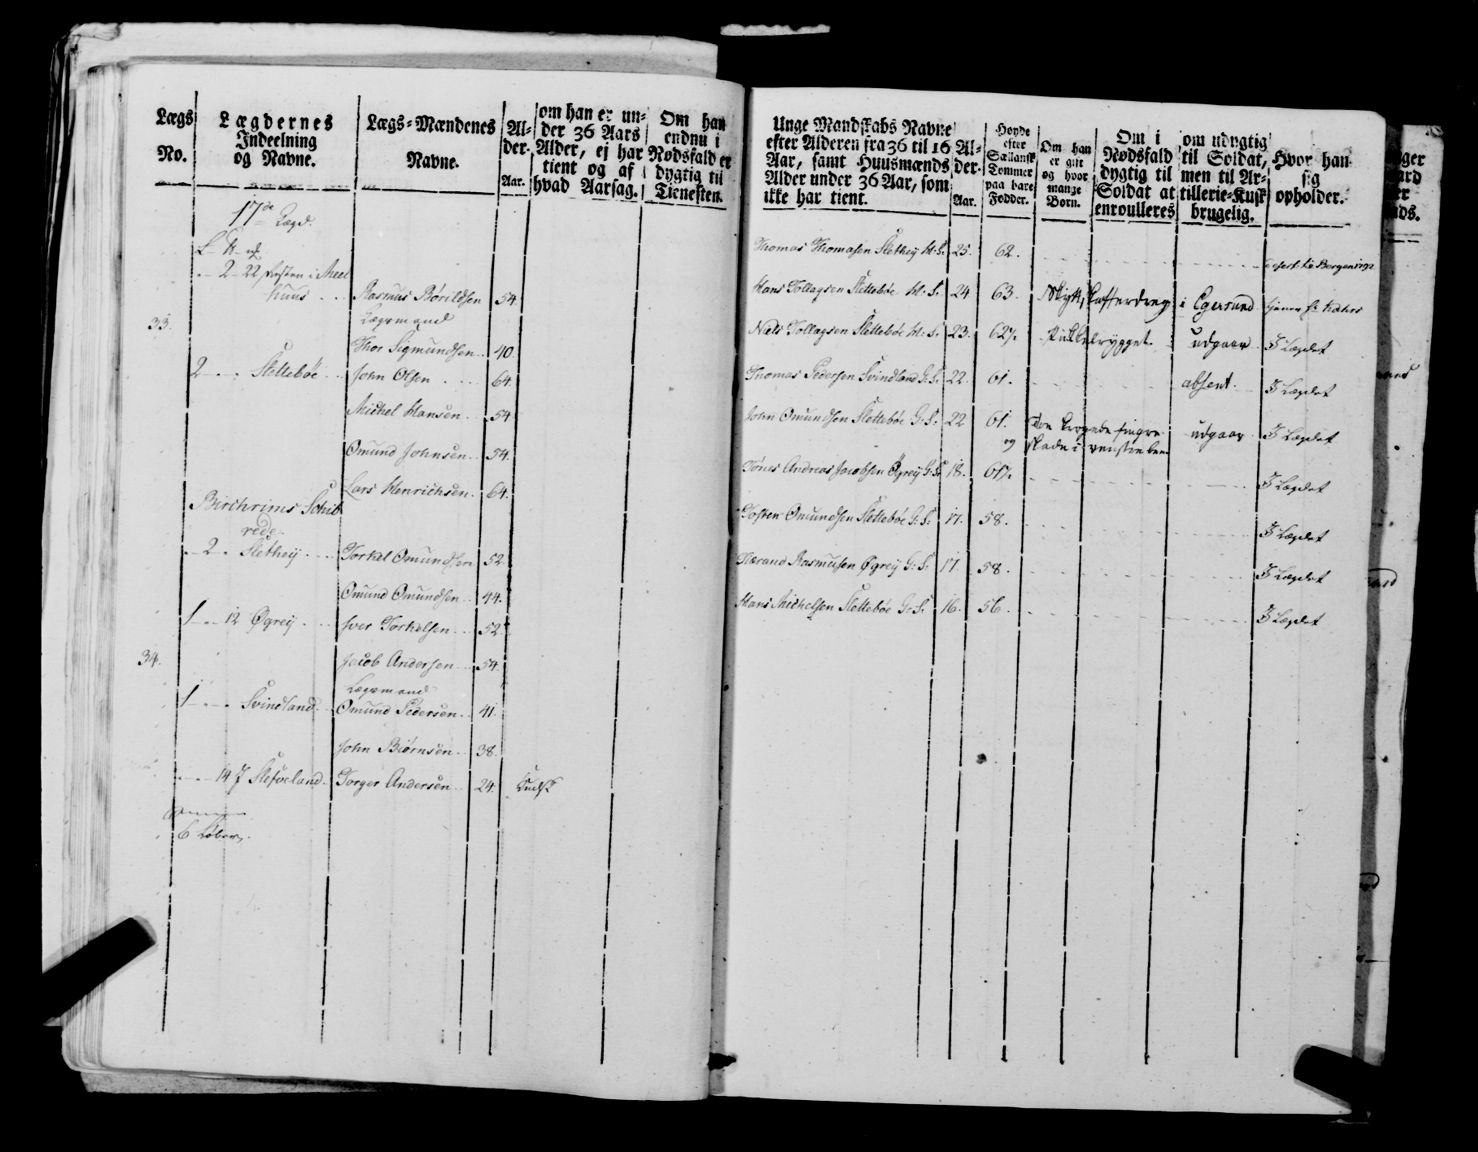 Lægs No.
Lægdernes Indeelning og Navne.
Lægs-Mændenes Navne.
Alder. Aar.
om han er under 36 Aars Alder, ej har tient og af hvad Aarsag.
Om han endnu i Nødsfald er dygtig til Tienesten.
17de Lægd.
2 22 i Meel
huus Rasmus Børildsen 54.
Lægsmand
33.
Thor Sigmundsen 40.
2 Slettebøe John Olsen 64.
Michel Hansen 54
Omund Johnsen 54.
Lars Henrichsen 64.
Birchrims Schib
rede
2 Slethey Torkel Omundsen 52.
Omund Omundsen 44.
1 12 Øgreij Iver Torkelsen 52.
34.
Jacob Andersen 54.
Lægsmand
1 Svindland Omund Pedersen 41.
John Biørnsen 38.
14 Torger Andersen 24. Kudsk
6 Løber
Unge Mandskabs Navne efter Alderen fra 36 til 16 Aar, samt Huusmænds Alder under 36 Aar, som ikke har tient.
Alder. Aar.
Høyde efter Siællansk Tommer paa bare Fødder.
Om han er gift og hvor mange Børn.
Om i Nødsfald dygtig til Soldat at enroulleres
om udygtig til Soldat, men til Artillerie-Kusk brugelig.
Hvor han sig opholder.
Thomas Thomasen Slethey H: S. 25. 62.
Hans Tollagsen Slettebøe H: S. 24 63. i Egersund
Niels Tollagsen Slettebøe H: S. 23. 62½ udgaar I Lægdet
Thomas Pedersen Svindland G: S. 22. 61. absent. I Lægdet
John Omundsen Slettebøe G: S. 22 61. udgaar I Lægdet
og skade i venstre been
Tønes Andreas Jacobsen Øgreij G: S. 18. 61½ I Lægdet
Tosten Omundsen Slettebøe G: S. 17. 58. I Lægdet
Rasmusen Øgreij G: S. 17. 58. I Lægdet
Hans Michelsen Slettebøe G: S. 16. 56. I Lægdet